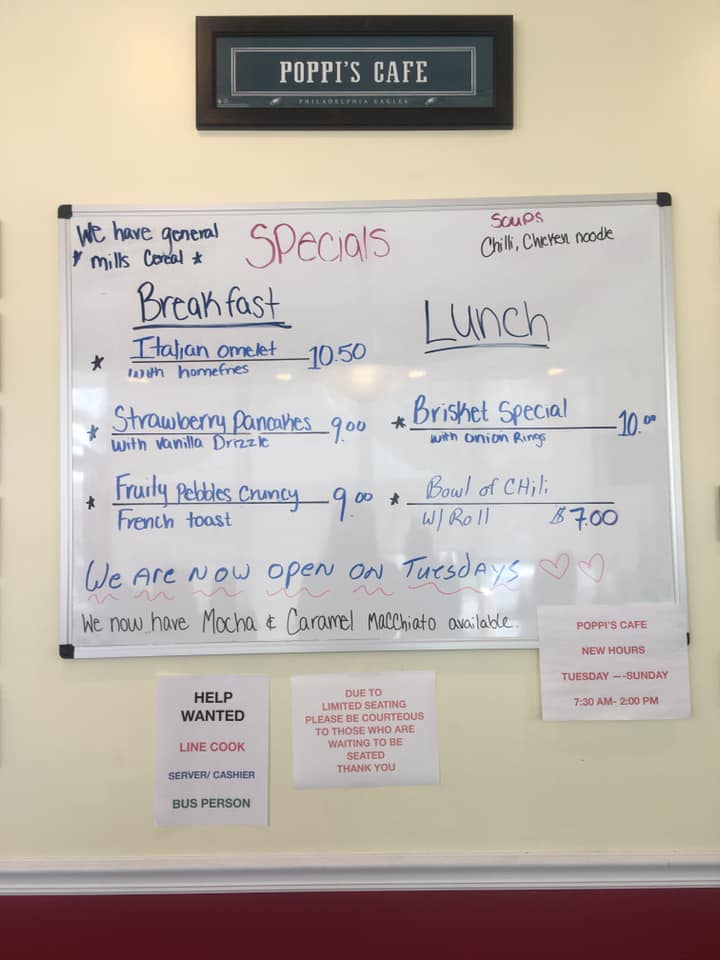 POPPI'S CAFE
PHILADELPHIA EAGLES
We have general
* mills Cereal *
Specials
Soups
Chilli, Chicken noodle
Breakfast
* Italian omelet 10.50
with homefries
* Strawberry Pancakes 9.00
with Vanilla Drizzle
* Fruity Pebbles Cruncy 9.00
French toast
Lunch
* Brisket Special 10.00
with onion Rings
* Bowl of CHili
W/ Roll $7.00
We Are Now open on Tuesdays ♡♡
We now have Mocha & Caramel Macchiato available.
POPPI'S CAFE
NEW HOURS
TUESDAY —-SUNDAY
7:30 AM- 2:00 PM
HELP
WANTED
LINE COOK
SERVER/ CASHIER
BUS PERSON
DUE TO
LIMITED SEATING
PLEASE BE COURTEOUS
TO THOSE WHO ARE
WAITING TO BE
SEATED
THANK YOU